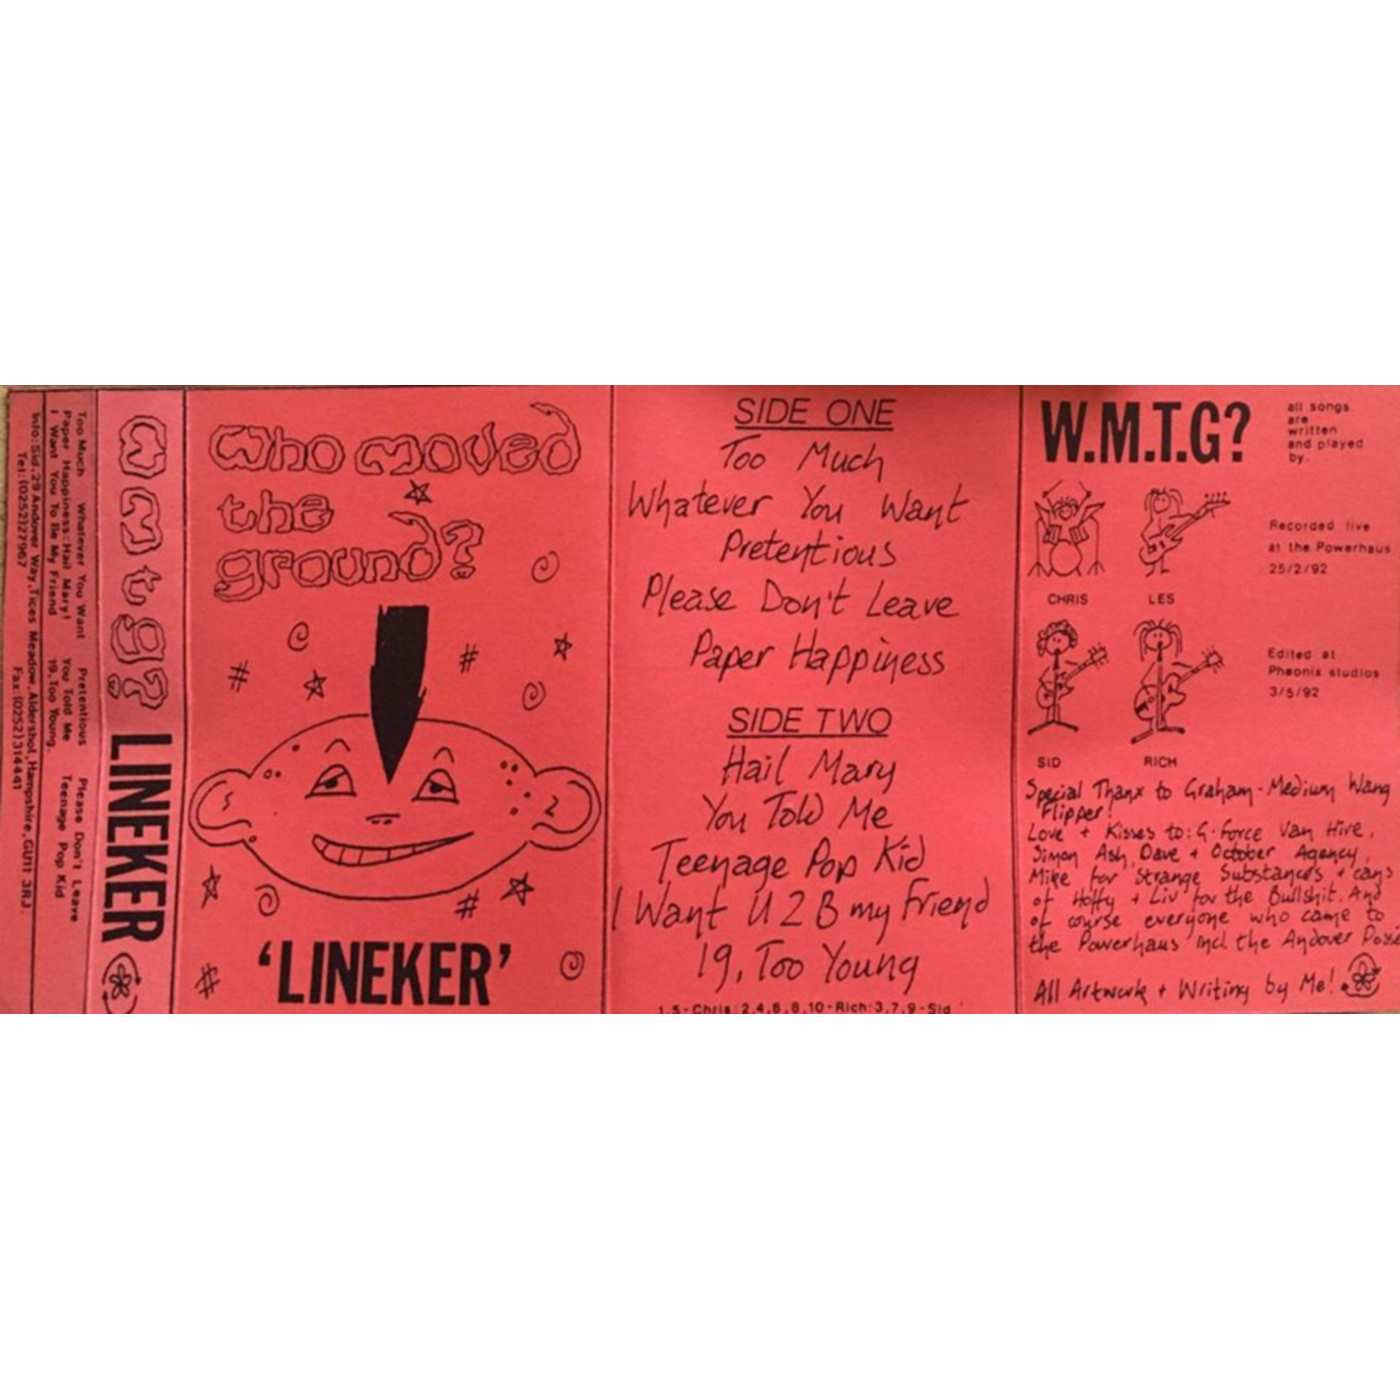 Too Much Whatever You Want Pretentious Please Don't Leave
Paper Happiness: Hail Mary! You Told Me Teenage Pop Kid
I Want You To Be My Friend 19, Too Young.
Info: Sid, 29 Andover Way, Tices Meadow, Aldershot, Hampshire, GU11 3RJ.
Tel: (0252)27967 Fax: (0252)314441
WMtg? LINEKER
Who moved
the
ground?
'LINEKER'
SIDE ONE
Too Much
Whatever You Want
Pretentious
Please Don't Leave
Paper Happiness
SIDE TWO
Hail Mary
You Told Me
Teenage Pop Kid
I Want U 2 B my Friend
19, Too Young
1,5-Chris: 2,4,6,8,10-Rich: 3,7,9-Sid
W.M.T.G?
all songs
are
written
and played
by.
CHRIS LES
SID RICH
Recorded live
at the Powerhaus
25/2/92
Edited at
Pheonix studios
3/5/92
Special Thanx to Graham-Medium Wang
Flipper!
Love + Kisses to: G-Force Van Hire,
Simon Ash, Dave + October Agency,
Mike for Strange Substances + cans
of Hoffy + Liv for the Bullshit. And
of course everyone who came to
the Powerhaus incl. the Andover Posse
All Artwork + Writing by Me!